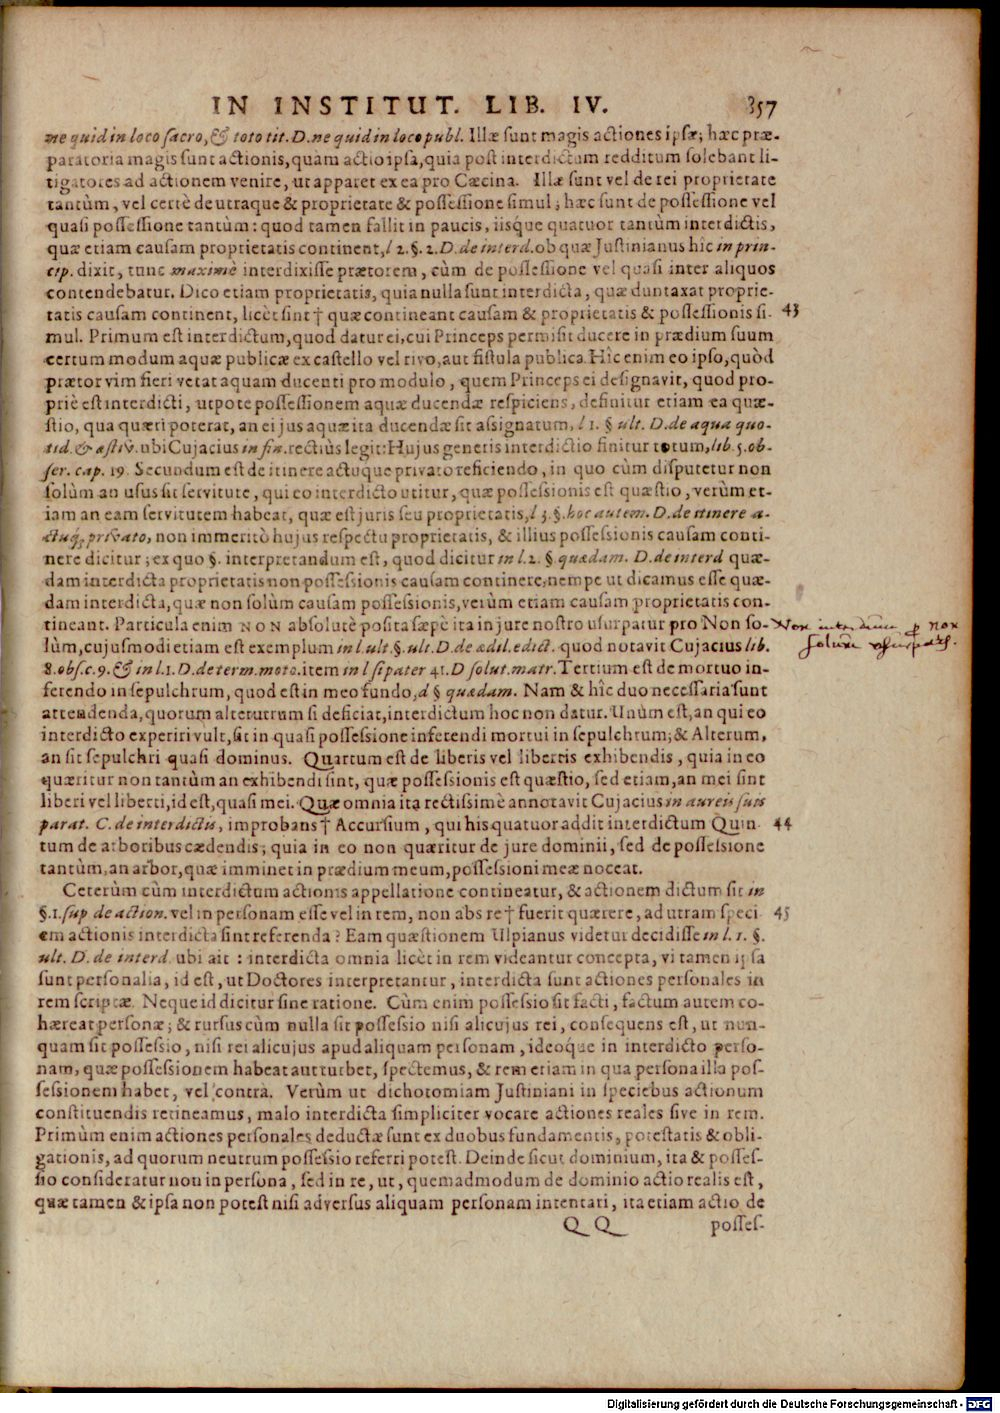 IN INSTITUT. LIB. IV. 357
ne quid in loco sacro, & toto tit. D. ne quid in loco publ. Illæ sunt magis actiones ipsæ; hæc præ-
paratoria magis sunt actionis, quàm actio ipsa, quia post interdictum redditum solebant li-
tigatores ad actionem venire, ut apparet ex ea pro Cæcina. Illæ sunt vel de rei proprietate
tantùm, vel certè de utraque & proprietate & possessione simul; hæc sunt de possessione vel
quasi possessione tantùm: quod tamen fallit in paucis, iisque quatuor tantùm interdictis,
quæ etiam causam proprietatis continent, l 2. §. 2. D. de interd. ob quæ Justinianus hîc in prin-
cip. dixit, tunc maximè interdixisse prætorem, cùm de possessione vel quasi inter aliquos
contendebatur. Dico etiam proprietatis, quia nulla sunt interdicta, quæ duntaxat proprie-
tatis causam continent, licèt sint † quæ contineant causam & proprietatis & possessionis si- 43
mul. Primum est interdictum, quod datur ei, cui Princeps permisit ducere in prædium suum
certum modum aquæ publicæ ex castello vel rivo, aut fistula publica. Hîc enim eo ipso, quòd
prætor vim fieri vetat aquam ducenti pro modulo, quem Princeps ei designavit, quod pro-
priè est interdicti, utpote possessionem aquæ ducendæ respiciens, definitur etiam ea quæ-
stio, qua quæri poterat, an ei jus aquæ ita ducendæ sit assignatum, l 1. § ult. D. de aqua quo-
tid. & æstiv. ubi Cujacius in fin. rectiùs legit: Hujus generis interdictio finitur totum, lib. 5. ob-
ser. cap. 19. Secundum est de itinere actuque privato reficiendo, in quo cùm disputetur non
solùm an usus sit servitute, qui eo interdicto utitur, quæ possessionis est quæstio, verùm et-
iam an eam servitutem habeat, quæ est juris seu proprietatis, l 3. §. hoc autem. D. de itinere a-
ctuq; privato, non immeritò hujus respectu proprietatis, & illius possessionis causam conti-
nere dicitur; ex quo §. interpretandum est, quod dicitur in l. 2. § quædam. D. de interd quæ-
dam interdicta proprietatis non possessionis causam continere; nempe ut dicamus esse quæ-
dam interdicta, quæ non solùm causam possessionis, verùm etiam causam proprietatis con-
tineant. Particula enim NON absolutè posita sæpè ita in jure nostro usurpatur pro Non so-
lùm, cujusmodi etiam est exemplum in l. ult. §. ult. D. de ædil. edict. quod notavit Cujacius lib.
8. obs. c. 9. & in l. 1. D. de term. moto. item in l si pater 41. D solut. matr. Tertium est de mortuo in-
ferendo in sepulchrum, quod est in meo fundo, d § quædam. Nam & hîc duo necessaria sunt
attendenda, quorum alterutrum si deficiat, interdictum hoc non datur. Unùm est, an qui eo
interdicto experiri vult, sit in quasi possessione inferendi mortui in sepulchrum; & Alterum,
an sit sepulchri quasi dominus. Quartum est de liberis vel libertis exhibendis, quia in eo
quæritur non tantùm an exhibendi sint, quæ possessionis est quæstio, sed etiam, an mei sint
liberi vel liberti, id est, quasi mei. Quæ omnia ita rectissimè annotavit Cujacius in aureis suis
parat. C. de interdictis, improbans † Accursium, qui his quatuor addit interdictum Quin- 44
tum de arboribus cædendis; quia in eo non quæritur de jure dominii, sed de possessione
tantùm, an arbor, quæ imminet in prædium meum, possessioni meæ noceat.
Ceterùm cùm interdictum actionis appellatione contineatur, & actionem dictum sit in
§. 1. sup de action. vel in personam esse vel in rem, non abs re † fuerit quærere, ad utram speci 45
em actionis interdicta sint referenda? Eam quæstionem Ulpianus videtur decidisse in l. 1. §.
ult. D. de interd. ubi ait: interdicta omnia licèt in rem videantur concepta, vi tamen ipsa
sunt personalia, id est, ut Doctores interpretantur, interdicta sunt actiones personales in
rem scriptæ. Neque id dicitur sine ratione. Cùm enim possessio sit facti, factum autem co-
hæreat personæ; & rursus cùm nulla sit possessio nisi alicujus rei, consequens est, ut nun-
quam sit possessio, nisi rei alicujus apud aliquam personam, ideoque in interdicto perso-
nam, quæ possessionem habeat aut turbet, spectemus, & rem etiam in qua persona illa pos-
sessionem habet, vel contrà. Verùm ut dichotomiam Justiniani in speciebus actionum
constituendis retineamus, malo interdicta simpliciter vocare actiones reales sive in rem.
Primùm enim actiones personales deductæ sunt ex duobus fundamentis, potestatis & obli-
gationis, ad quorum neutrum possessio referri potest. Deinde sicut dominium, ita & posses-
sio consideratur non in persona, sed in re, ut, quemadmodum de dominio actio realis est,
quæ tamen & ipsa non potest nisi adversus aliquam personam intentari, ita etiam actio de
QQ posses-
Non interdum p non
solum usurpatur.
Digitalisierung gefördert durch die Deutsche Forschungsgemeinschaft - DFG